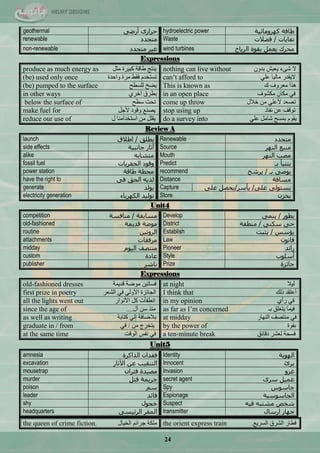 HELMY DESIGNS
geothermal حراري أرضي hydroelectric power طاقة كهرومائية
renewable متجدد Waste نفايات / فضلات
non-renewable غير متجدد wind turbines محرك يعمل بقوة الرياح
Expressions
produce as much energy as ينتج طاقة كبيرة مثل nothing can live without لا شيء يعيش بدون
(be) used only once تستخدم فقط مرة واحدة can't afford to لايقدر ماليا علي
(be) pumped to the surface يضخ للسطح This is known as هذا معروف ك
in other ways بطرق أخري in an open place في مكان مكشوف
below the surface of تحت سطح come up throw تصعد لأعلي من خلال
make fuel for يصنع وقود لأجل stop using توقف عن نفاذ
reduce our use of يقلل من استخدامنا ل do a survey into يقوم بمسح شامل علي
Review A
launch يطلق / إطلاق Renewable متجدد
side effects آثار جانبية Source منبع النهر
alike متشابه Mouth مصب النهر
fossil fuel وقود الحفريات Predict يتنبأ بـ
power station محطة طاقة Recommend يوصى بـ / يرشح
have the right to لديه الحق فى Distance مسافة
generate يولد Capture يستولى على/ يأسر/يحصل على
electricity generation توليد الكهرباء Store يخزن
Unit4
competition مسابقة / منافسة Develop يطور / ينمى
old-fashioned موضة قديمة District حى سكنى / منطقة
routine الروتين Establish يؤسس / يثبت
attachments مرفقات Law قانون
midday منتصف اليوم Pioneer رائد
custom عادة Style أسلوب
publisher ناشر Prize جائزة
Expressions
old-fashioned dresses فساتين موضة قديمة at night ليلا
first prize in poetry الجائزة الأولي في الشعر I think that أعتقد ذلك
all the lights went out انطفات كل الأنوار in my opinion في رأي
since the age of منذ سن ال as far as I'm concerned فيما يتعلق بـ
as well as writing بلاضافة إلي كتابة at midday في منتصف النهار
graduate in / from يتخرج من / في by the power of بقوة
at the same time في نفس الوقت a ten-minute break فسحة لعشر دقائق
Unit5
amnesia فقدان الذاكرة Identity الهوية
excavation التنقيب عن الآثار Innocent برئ
mousetrap مصيدة فئران Invasion غزو
murder جريمة قتل secret agent عميل سري
poison سم Spy جاسوس
leader قائد Espionage الجاسوسية
shy خجول Suspect شخص مشتبه فيه
headquarters المقر الرئيسى transmitter جهاز ارسال
the queen of crime fiction. ملكة جرائم الخيال the orient express train قطار الشرق السريع.
24